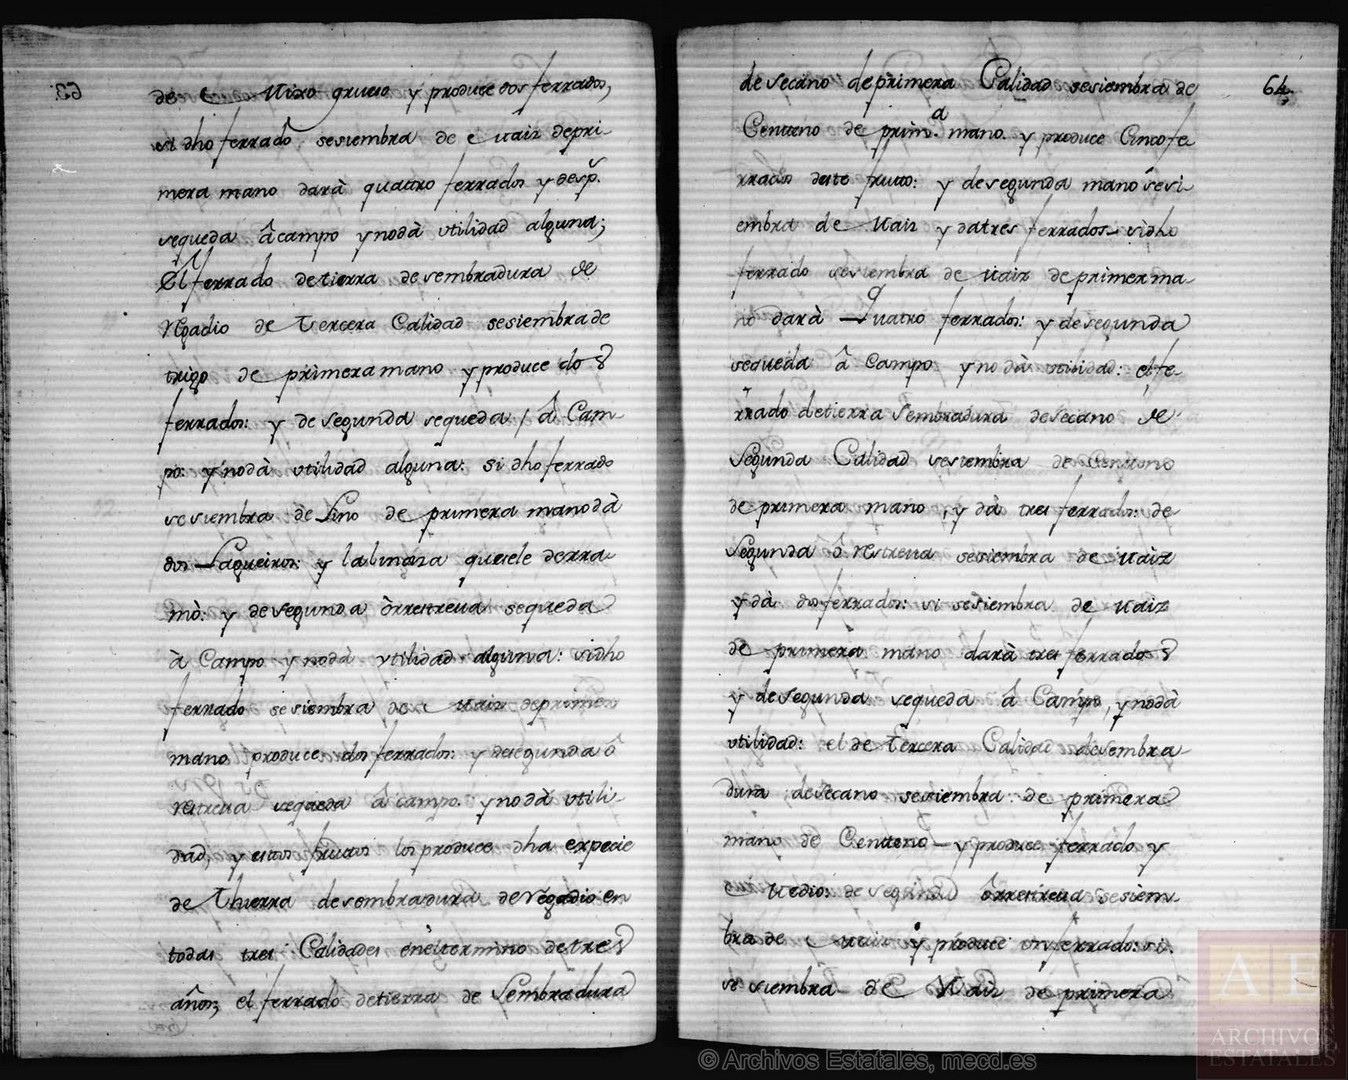 de Mixo grueso y produce dos ferrados,
si dho ferrado sesiembra de Maiz depri-
mera mano darà quatro ferrados y desp.s
sequeda â campo ynodà vtilidad alguna;
El ferrado detierra desembradura de
Rgadio de Tercera Calidad sesiembra de
trigo de primera mano y produce dos
ferrados: y de segunda sequeda / â Cam-
po: ynodà vtilidad alguna: si dho ferrado
sesiembra de Lino de primera mano dà
dos Fagueiros: y la linaza quesele derra-
mò: y desegunda òrrestreua sequeda
à Campo ynodà vtilidad alguna: sidho
ferrado sesiembra de Maiz deprimera
mano produce dos ferrados: y desegunda ô
restreua sequeda â campo. ynodà vtili-
dad, y estos frutos los produce dha especie
de Thierra desembradura de Regadio en
todas tres Calidades enèltermino detres
años; el ferrado detierra de Sembradura
64.
de secano deprimera Calidad sesiembra de
Centeno de prim.a mano. y produce Cinco fe
rrados deste fruto: y desegunda mano sesi-
embra de Maiz y datres ferrados sidho
ferrado sesiembra de Maiz de primer ma-
no darà Quatro ferrados: y desegunda
sequeda â Campo ynodà vtilidad: el fe-
rrado detierra Sembradura desecano de
Segunda Calidad sesiembra de Centeno
de primera mano, y dà tres ferrados: de
Segunda ô Restreua sesiembra de Maiz
y dà dos ferrados: si sesiembra de Maiz
de primera mano darà tres ferrados
y desegunda sequeda â Campo, ynodà
vtilidad: el de Tercera Calidad desembra-
dura desecano sesiembra de primera
mano de Centeno y produce ferrado y
Medio: de segunda ôrrestreua sesiem-
bra de Maiz y produce vnferrado: si
se siembra de Maiz de primera
© Archivos Estatales, mecd.es
AE
ARCHIVOS
ESTATALES